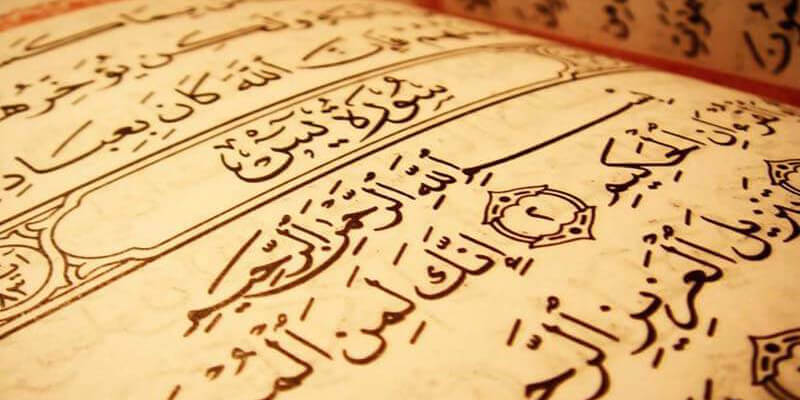 وَلَٰكِن يُؤَخِّرُهُ
ٱللَّهَ كَانَ بِعِبَادِ
سُورَةُ يسٓ
بِسْمِ ٱللَّهِ ٱلرَّحْمَٰنِ ٱلرَّحِيمِ
ٱلْقُرْءَانِ ٱلْحَكِيمِ ٢ إِنَّكَ لَمِنَ ٱلْمُ
تَنزِيلَ ٱلْعَزِيزِ ٱلرَّحِ